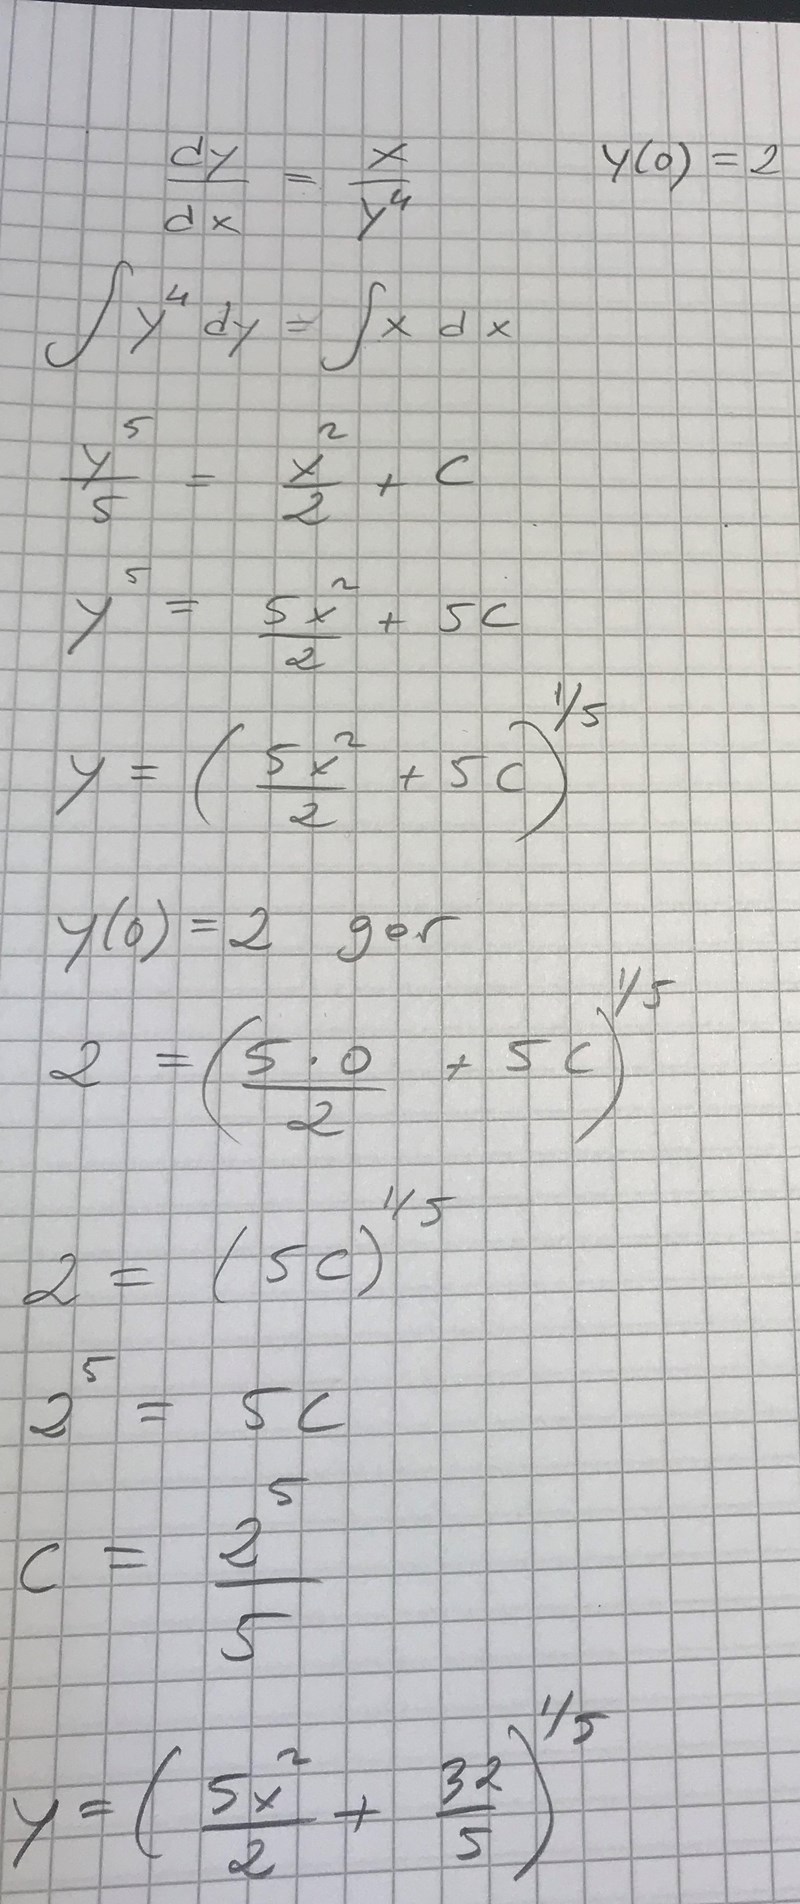 dy/dx = x/y⁴   y(0) = 2
∫ y⁴ dy = ∫ x dx
y⁵/5 = x²/2 + C
y⁵ = 5x²/2 + 5C
y = (5x²/2 + 5C)^1/5
y(0) = 2 ger
2 = (5·0/2 + 5C)^1/5
2 = (5C)^1/5
2⁵ = 5C
C = 2⁵/5
y = (5x²/2 + 32/5)^1/5